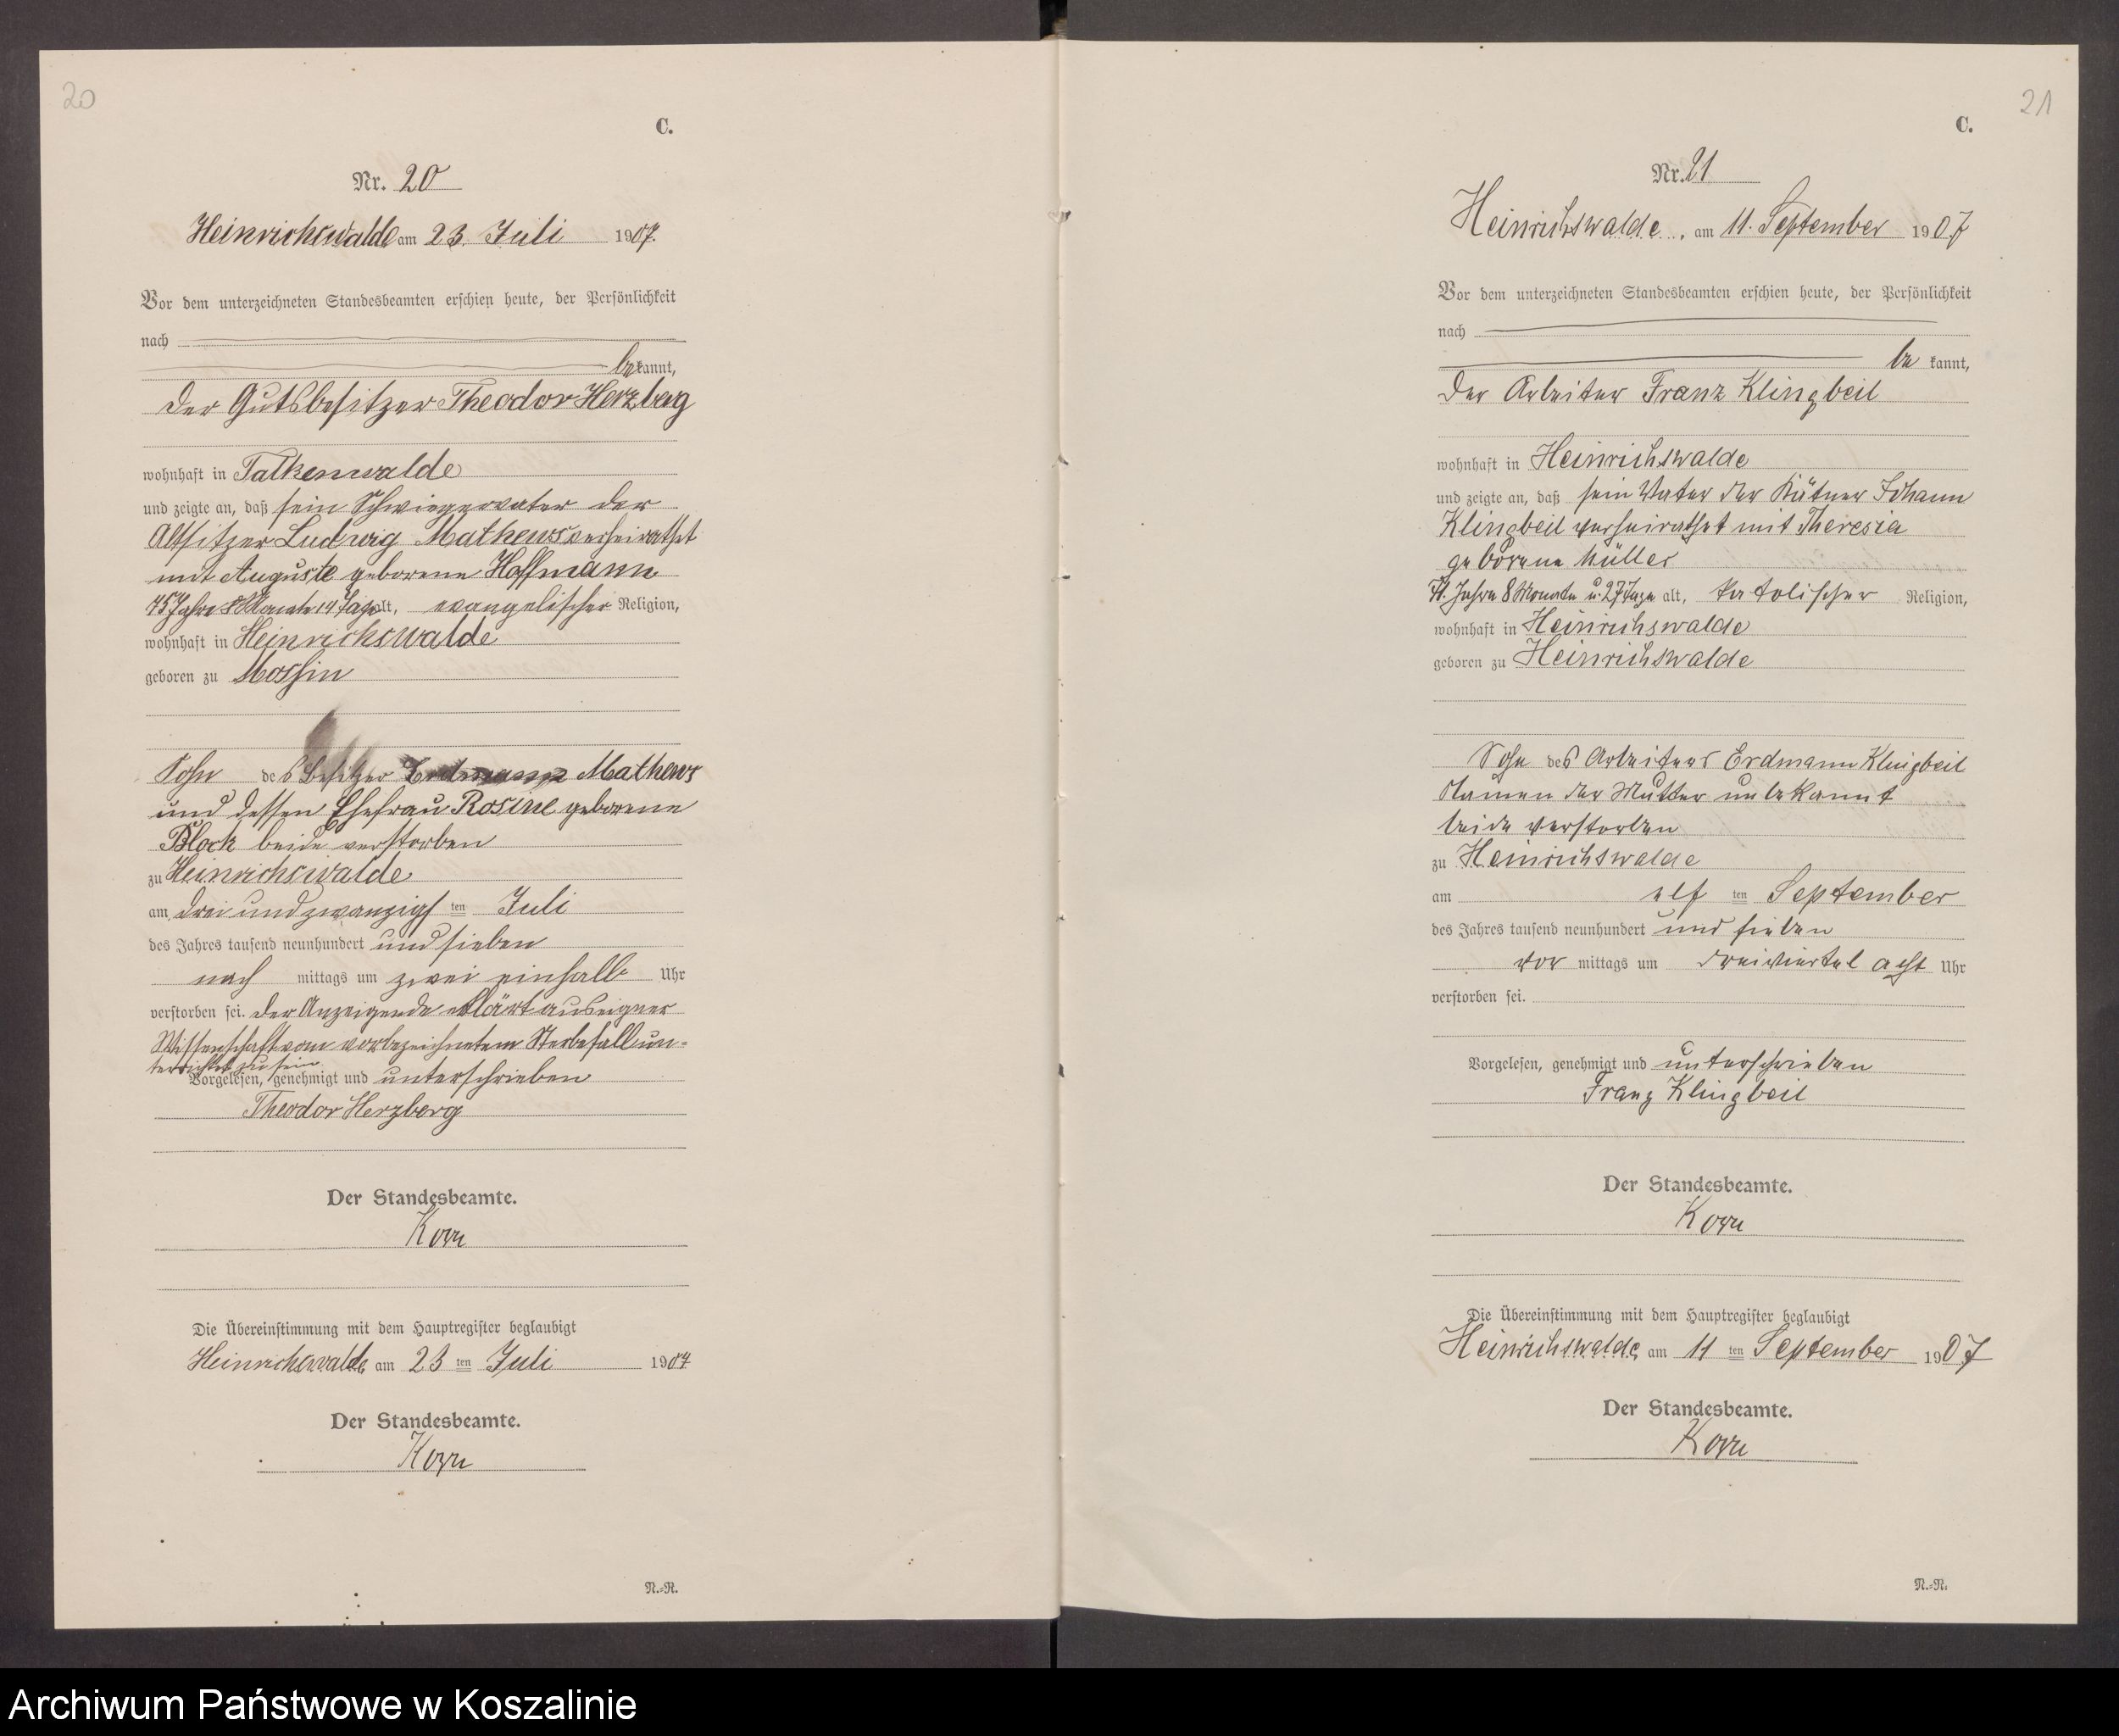 20
C.
Nr. 20
Heinrichswalde am 23. Juli 1907.
Vor dem unterzeichneten Standesbeamten erschien heute, der Persönlichkeit
nach
bekannt,
der Gutsbesitzer Theodor Herzberg
wohnhaft in Falkenwalde
und zeigte an, daß sein Schwiegervater der
Altsitzer Ludwig Mathews verheirathet
mit Auguste geborene Hoffmann
75 Jahre 8 Monate 14 Tage alt, evangelischer Religion,
wohnhaft in Heinrichswalde
geboren zu Mossin
Sohn des Besitzer Erdmann Mathews
und dessen Ehefrau Rosine geborene
Block beide verstorben
zu Heinrichswalde
am drei und zwanzigsten Juli
des Jahres tausend neunhundert und sieben
nach mittags um zwei einhalb Uhr
verstorben sei. Der Anzeigende erklärt aus eigner
Wissenschaft vom vorbezeichnetem Sterbefall un-
terrichtet zu sein
Vorgelesen, genehmigt und unterschrieben
Theodor Herzberg
Der Standesbeamte.
Korn
Die Übereinstimmung mit dem Hauptregister beglaubigt
Heinrichswalde am 23 ten Juli 1907
Der Standesbeamte.
Korn
N.-R.
21
C.
Nr. 21
Heinrichswalde, am 11. September 1907
Vor dem unterzeichneten Standesbeamten erschien heute, der Persönlichkeit
nach
be kannt,
der Arbeiter Franz Klingbeil
wohnhaft in Heinrichswalde
und zeigte an, daß sein Vater der Kätner Johann
Klingbeil verheirathet mit Theresia
geborene Müller
71 Jahre 8 Monate u. 27 Tage alt, katolischer Religion,
wohnhaft in Heinrichswalde
geboren zu Heinrichswalde
Sohn des Arbeiters Erdmann Klingbeil
Namen der Mutter unbekannt
beide verstorben
zu Heinrichswalde
am elf ten September
des Jahres tausend neunhundert und sieben
vor mittags um dreiviertel acht Uhr
verstorben sei.
Vorgelesen, genehmigt und unterschrieben
Franz Klingbeil
Der Standesbeamte.
Korn
Die Übereinstimmung mit dem Hauptregister beglaubigt
Heinrichswalde am 11 ten September 1907
Der Standesbeamte.
Korn
N.-R.
Archiwum Państwowe w Koszalinie